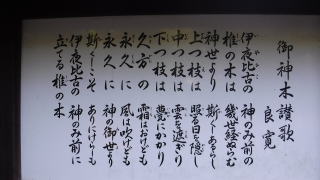 御神木讃歌
良寛
伊夜比古の 神のみ前の
椎の木は 幾世経ぬらむ
神世より 斯くしあるらし
上つ枝は 照る日を隠し
中つ枝は 雲を遮ぎり
下つ枝は 甍にかかり
久方の 霜はおけども
永久に 風は吹けども
永久に 神の御世より
斯くしこそ ありけらしも
伊夜比古の 神のみ前に
立てる椎の木